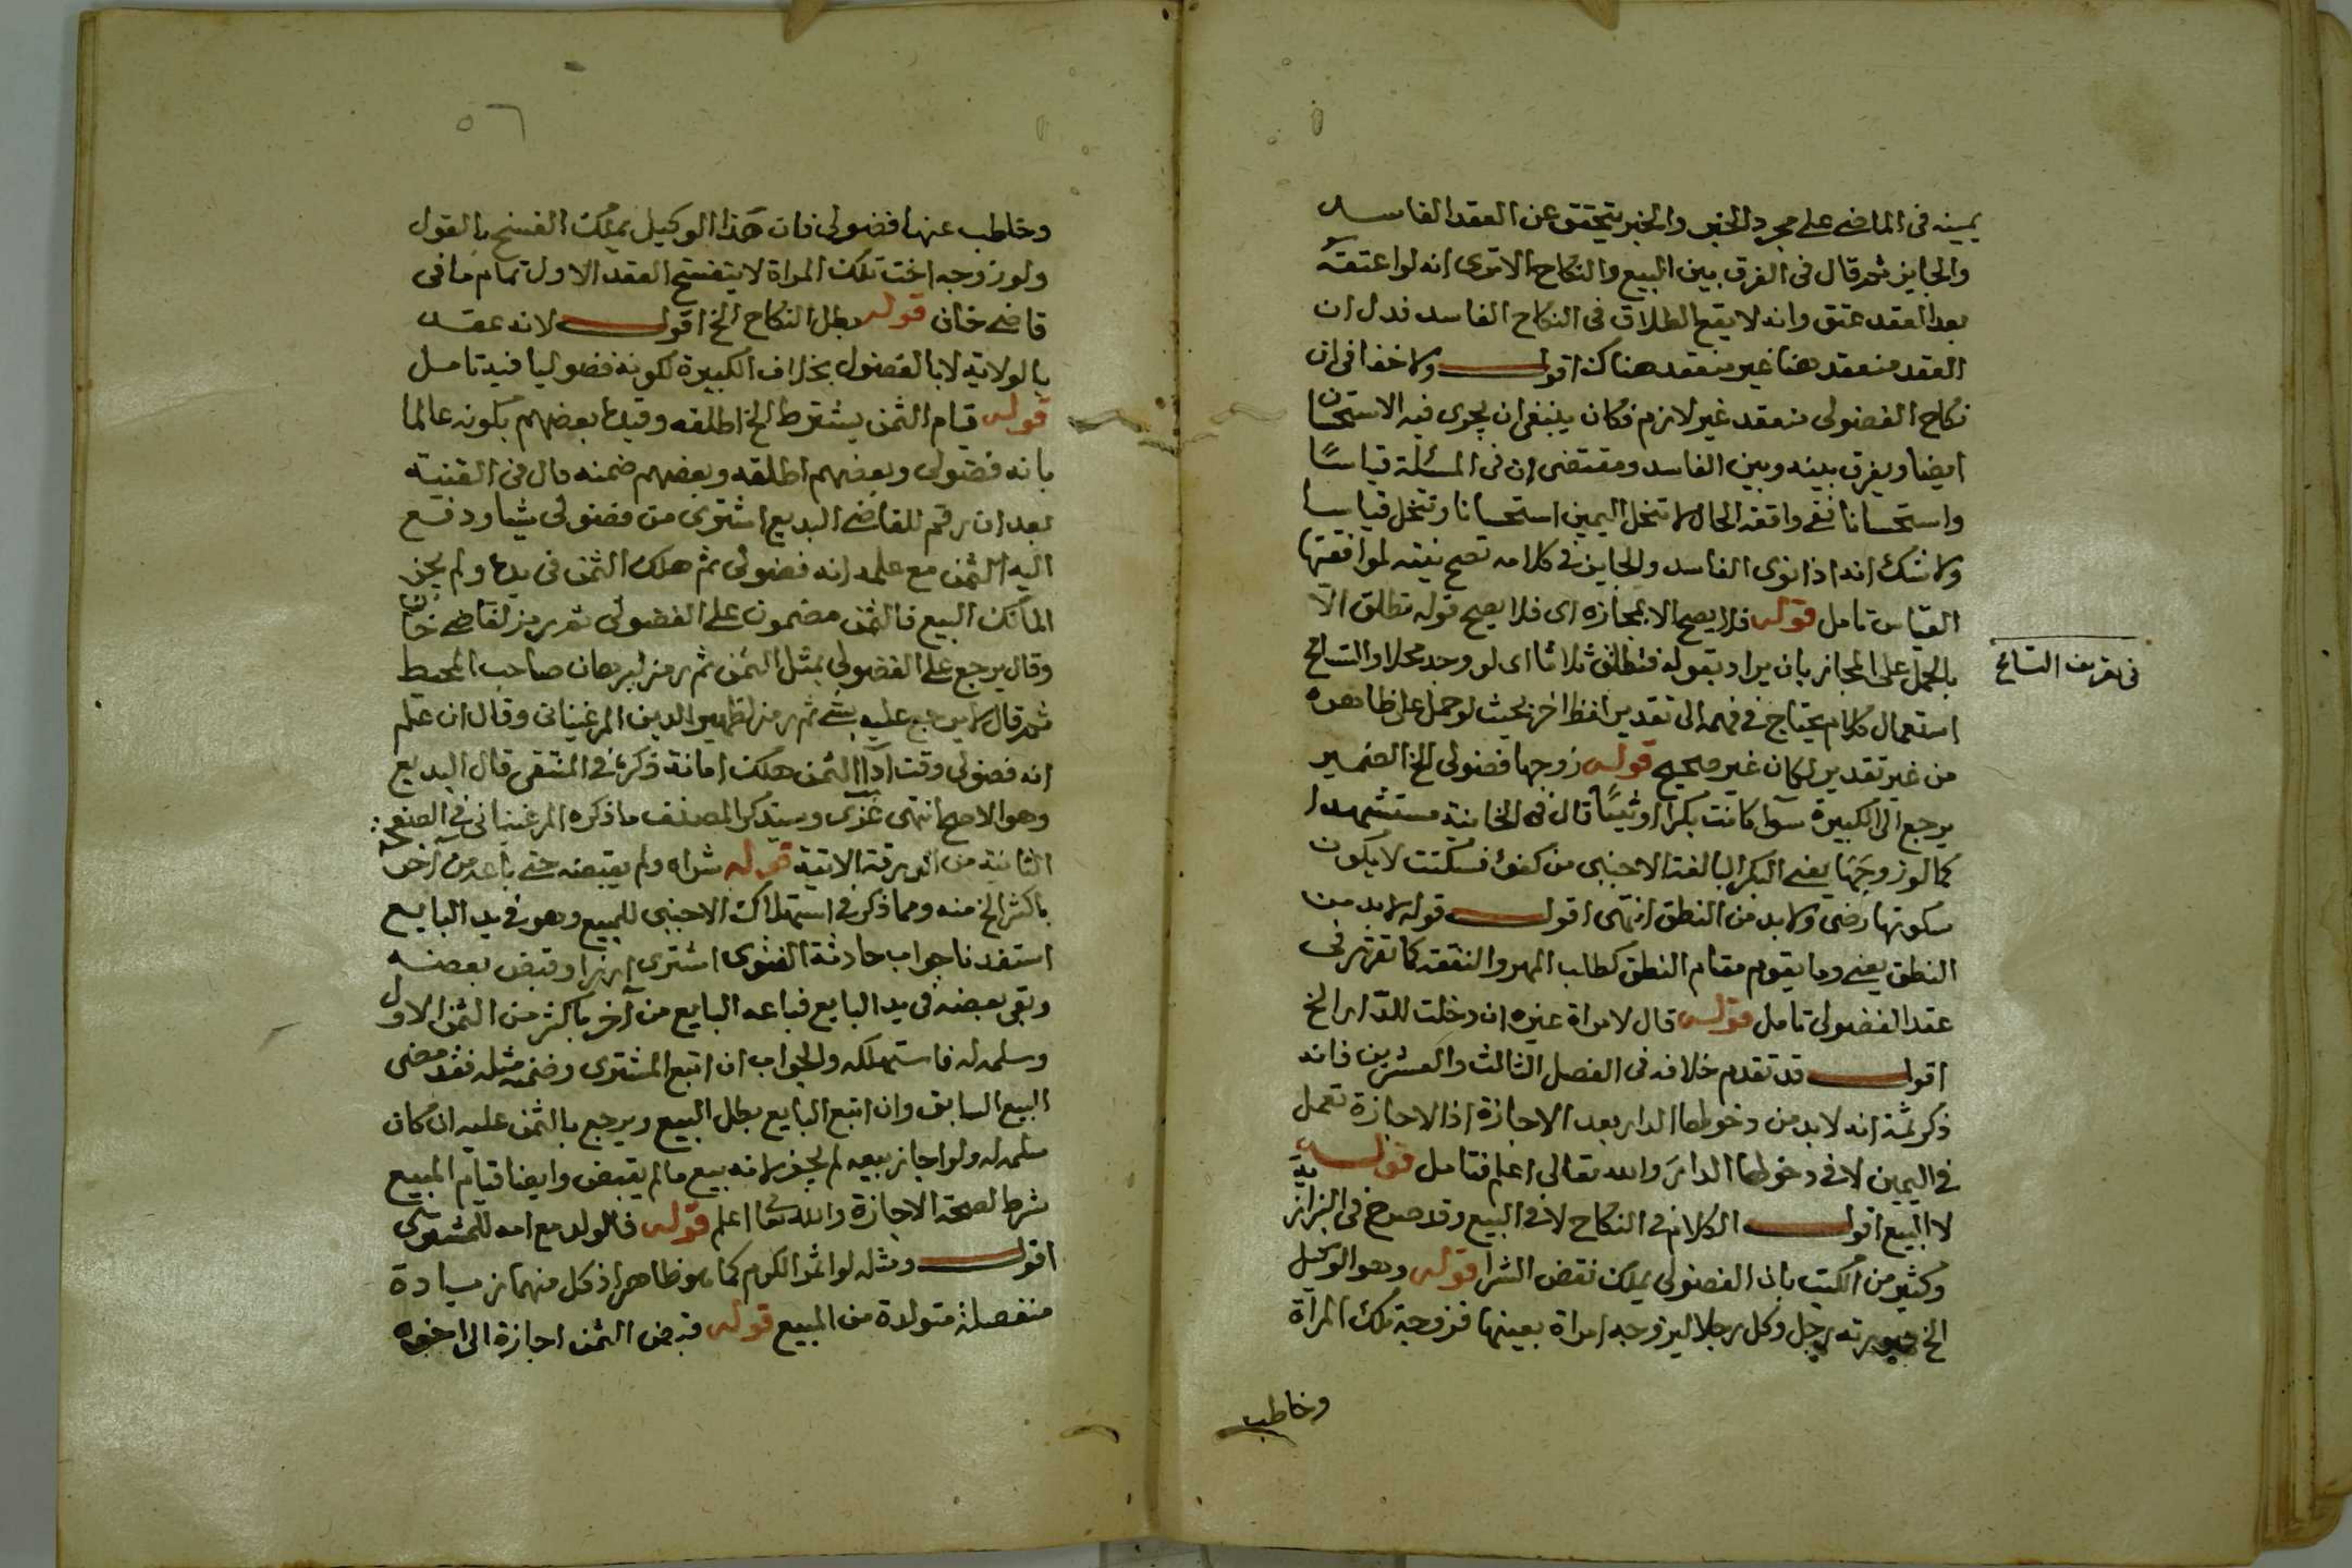 يمينه في الماضي على مجرد الخبر والخبر يتحقق عن العقد الفاسد
والجايز ثم قال في الفرق بين البيع والنكاح الا ترى انه لو اعتقه
بعد العقد عتق وانه لا يقع الطلاق في النكاح الفاسد فدل ان
العقد منعقد هنا غير منعقد هناك اقول ولا خفا في ان
نكاح الفضولي منعقد غير لازم فكان ينبغي ان يجري فيه الاستحسان
ايضا ويفرق بينه وبين الفاسد ومقتضى ان في المسئلة قياسًا
واستحسانا ففي واقعة الحال لا تنحل اليمين استحسانا وتنحل قياسا
ولا شك انه اذا نوى الفاسد والجايز في كلامه تصح نيته لموافقتها
القياس تامل قوله فلا يصح الا بمجازه اى فلا يصح قوله تطلق الا
بالحمل على المجاز بان يراد بقوله فتطلق ثلاثا اى لو وجد محلا والتسامح
في تعريف التسامح
استعمال كلام يحتاج في فهمه الى تقدير لفظ اخر بحيث لو حمل على ظاهره
من غير تقدير لكان غير صحيح قوله زوجها فضولي الخ الضمير
يرجع الى الكبيرة سوآ كانت بكرا او ثيبًا قال في الخانية مستشهدا
كما لو زوجها يعني البكر البالغة الاجنبى من كفؤ فسكتت لا يكون
سكوتها رضى ولا بد من النطق انتهى اقول قوله لا بد من
النطق يعني وما يقوم مقام النطق كطلب المهر والنفقة كما تقرر في
عقد الفضولي تامل قوله قال لامراة غيره ان دخلت الدار الخ
اقول قد تقدم خلافه في الفصل الثالث والعشرين فانه
ذكر ثمة انه لا بد من دخولها الدار بعد الاجازة اذ الاجازة تعمل
في اليمين لا في دخولها الدار والله تعالى اعلم فتامل قوله
لا البيع اقول الكلام في النكاح لا في البيع وقد صرح في البزازية
وكثير من الكتب بان الفضولي يملك نقض الشرا قوله وهو الوكيل
الخ صورته رجل وكل رجلا ليزوجه امراة بعينها فزوجه تلك المراة
وخاطب
٥٦
وخاطب عنها فضولي فان هذا الوكيل يملك الفسخ بالقول
ولو زوجه اخت تلك المراة لا ينفسخ العقد الاول تمام ما في
قاضي خان قوله بطل النكاح الخ اقول لانه عقد
بالولاية لا بالفضول بخلاف الكبيرة لكونه فضوليا فيه تامل
قوله قيام الثمن يشترط الخ اطلقه وقيده بعضهم بكونه عالما
بانه فضولي وبعضهم اطلقه وبعضهم ضمنه قال في القنية
بعد ان رقم للقاضي البديع اشترى من فضولي شيا ودفع
اليه الثمن مع علمه انه فضولي ثم هلك الثمن في يده ولم يجز
المالك البيع فالثمن مضمون على الفضولي ثم رمز لقاضي خان
وقال يرجع على الفضولي بمثل الثمن ثم رمز لبرهان صاحب المحيط
ثم قال لا يرجع عليه بشي ثم رمز لظهير الدين المرغيناني وقال ان علم
انه فضولي وقت ادآ الثمن هلك امانة ذكره في المنتقى قال البديع
وهو الاصح انتهى غزي وستذكر المصنف ما ذكره المرغيناني في الصفحة
الثانية من الورقة الاتية قوله شراه ولم يقبضه حتى باعه من اخر
باكثر الخ منه ومما ذكر في استهلاك الاجنبى للمبيع وهو في يد البايع
استفدنا جواب حادثة الفتوى اشترى ارزا وقبض بعضه
وبقى بعضه في يد البايع فباعه البايع من آخر باكثر من الثمن الاول
وسلمه له فاستهلكه والجواب ان اتبع المشترى وضمنه مثله فقد مضى
البيع السابق وان اتبع البايع بطل البيع ويرجع بالثمن عليه ان كان
سلمه له ولو اجاز بيعه لم يجز لانه بيع ما لم يقبض وايضا قيام المبيع
شرط لصحة الاجازة والله تعا اعلم قوله فالولد مع امه للمشترى
اقول ومثله لو اثمر الكرم كما هو ظاهر اذ كل منهما زيادة
منفصلة متولدة من المبيع قوله قبض الثمن اجازة الى اخره